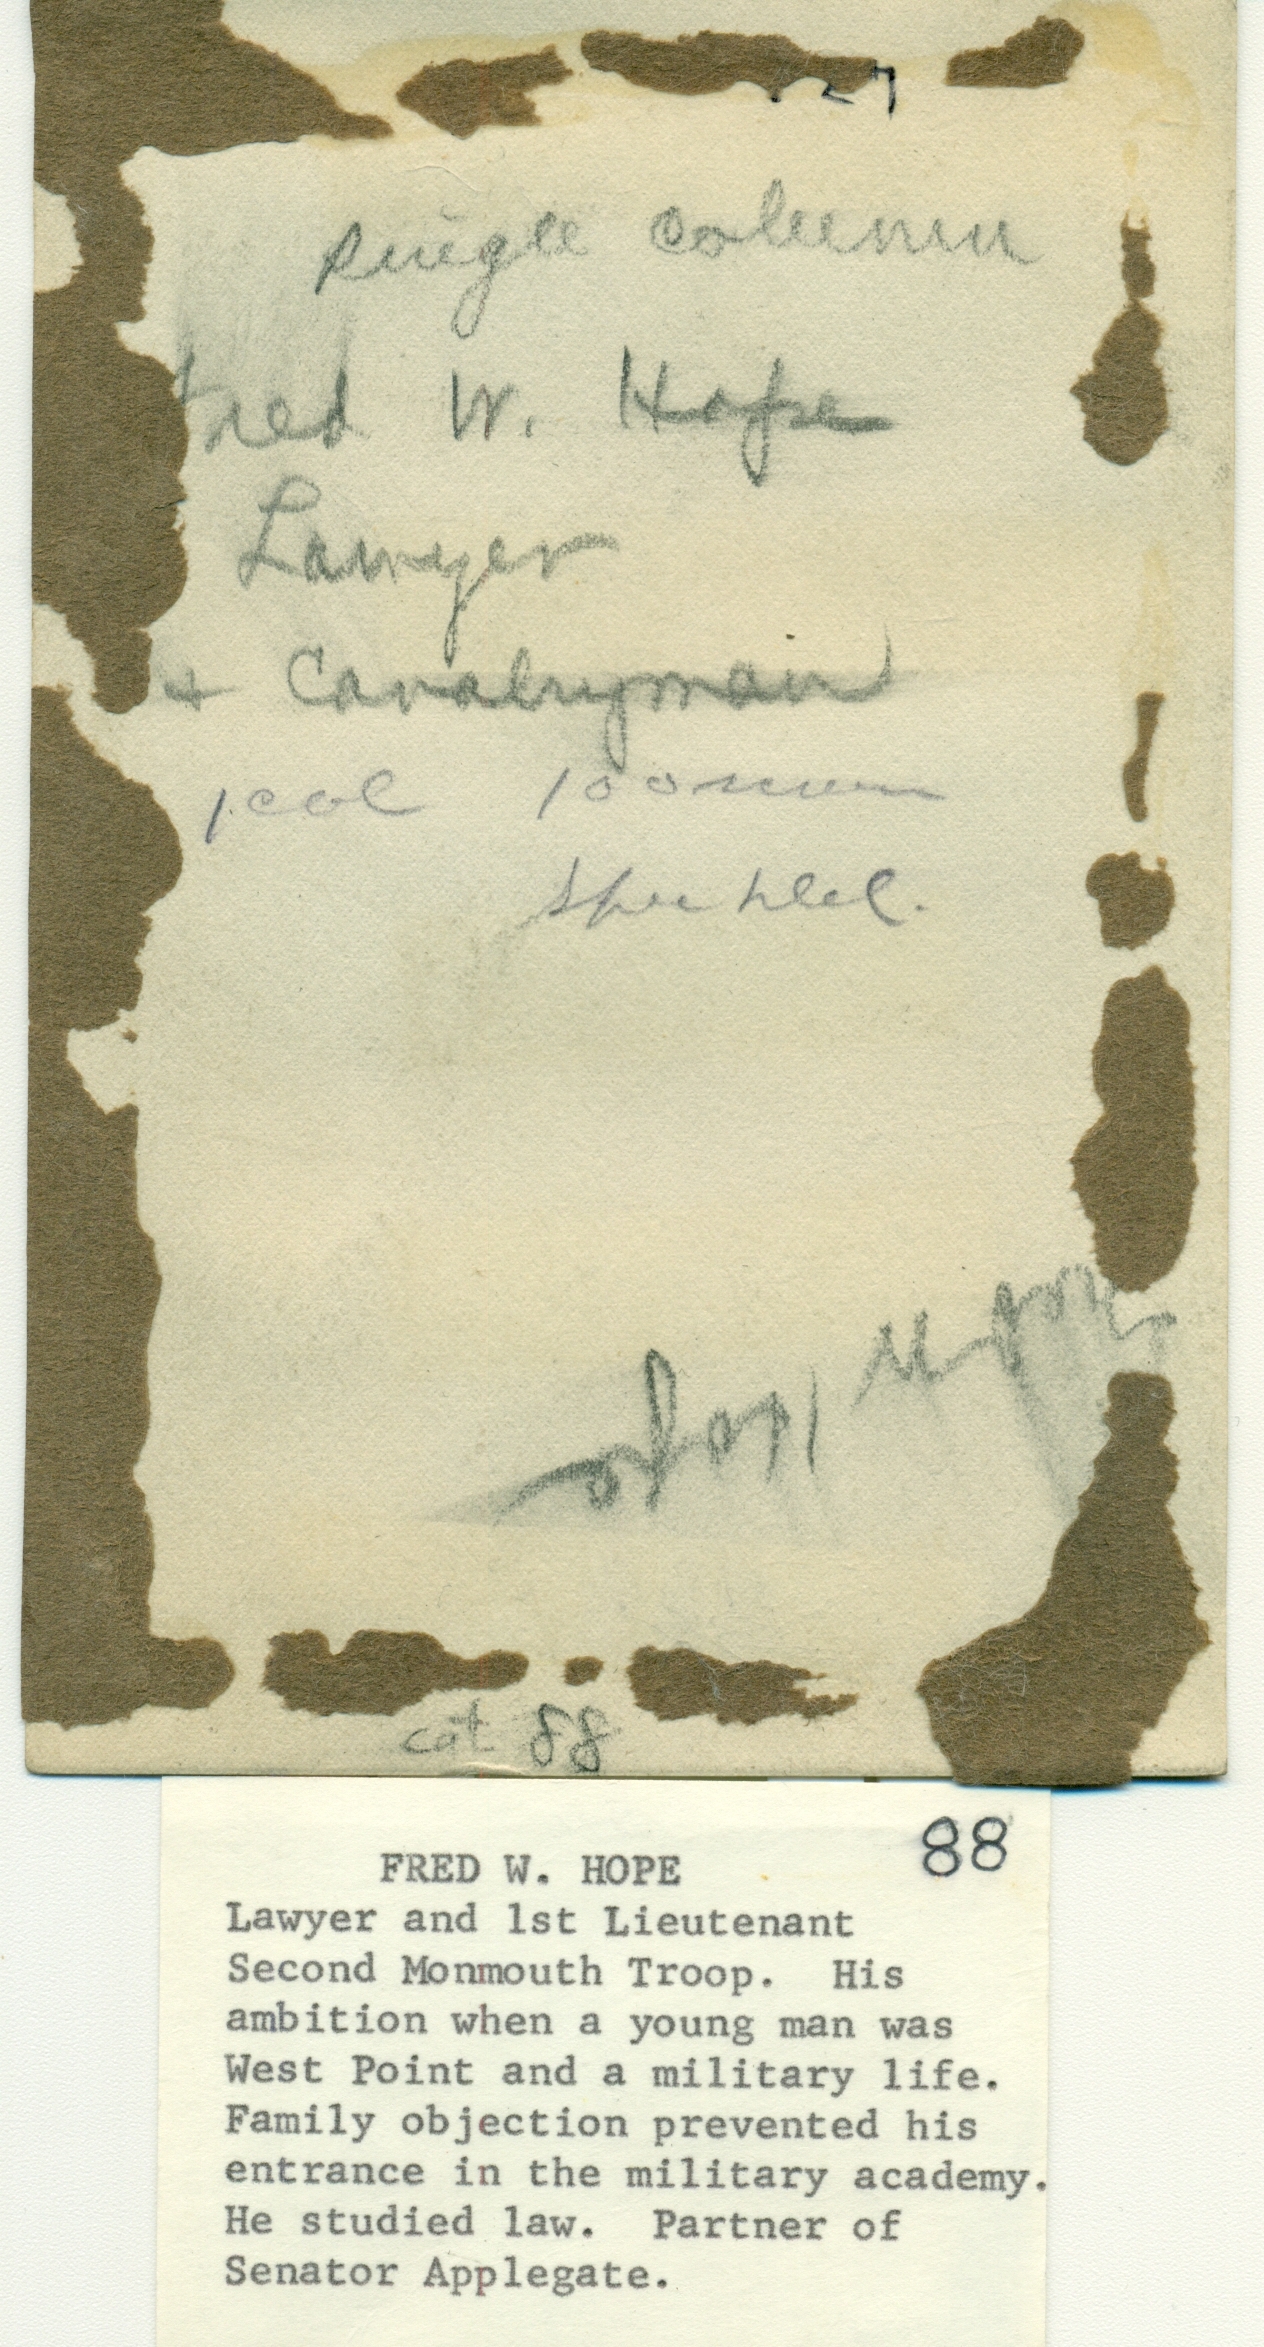 27
single column
Fred W. Hope
Lawyer
+ Cavalryman
1 col 100
cat 88
88
FRED W. HOPE
Lawyer and 1st Lieutenant
Second Monmouth Troop. His
ambition when a young man was
West Point and a military life.
Family objection prevented his
entrance in the military academy.
He studied law. Partner of
Senator Applegate.